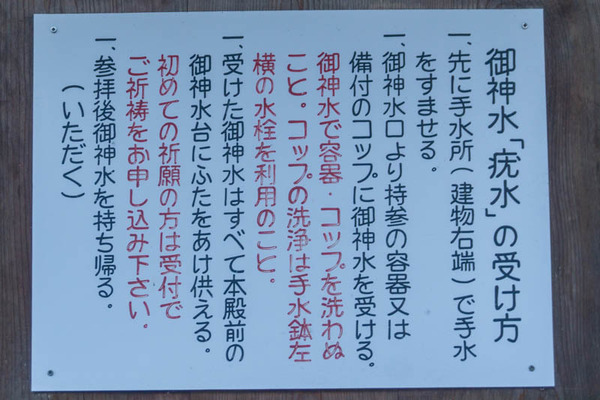 御神水「疣水」の受け方
一、先に手水所(建物右端)で手水
をすませる。
一、御神水口より持参の容器又は
備付のコップに御神水を受ける。
御神水で容器・コップを洗わぬ
こと。コップの洗浄は手水鉢左
横の水栓を利用のこと。
一、受けた御神水はすべて本殿前の
御神水台にふたをあけ供える。
初めての祈願の方は受付で
ご祈祷をお申し込み下さい。
一、参拝後御神水を持ち帰る。
(いただく)